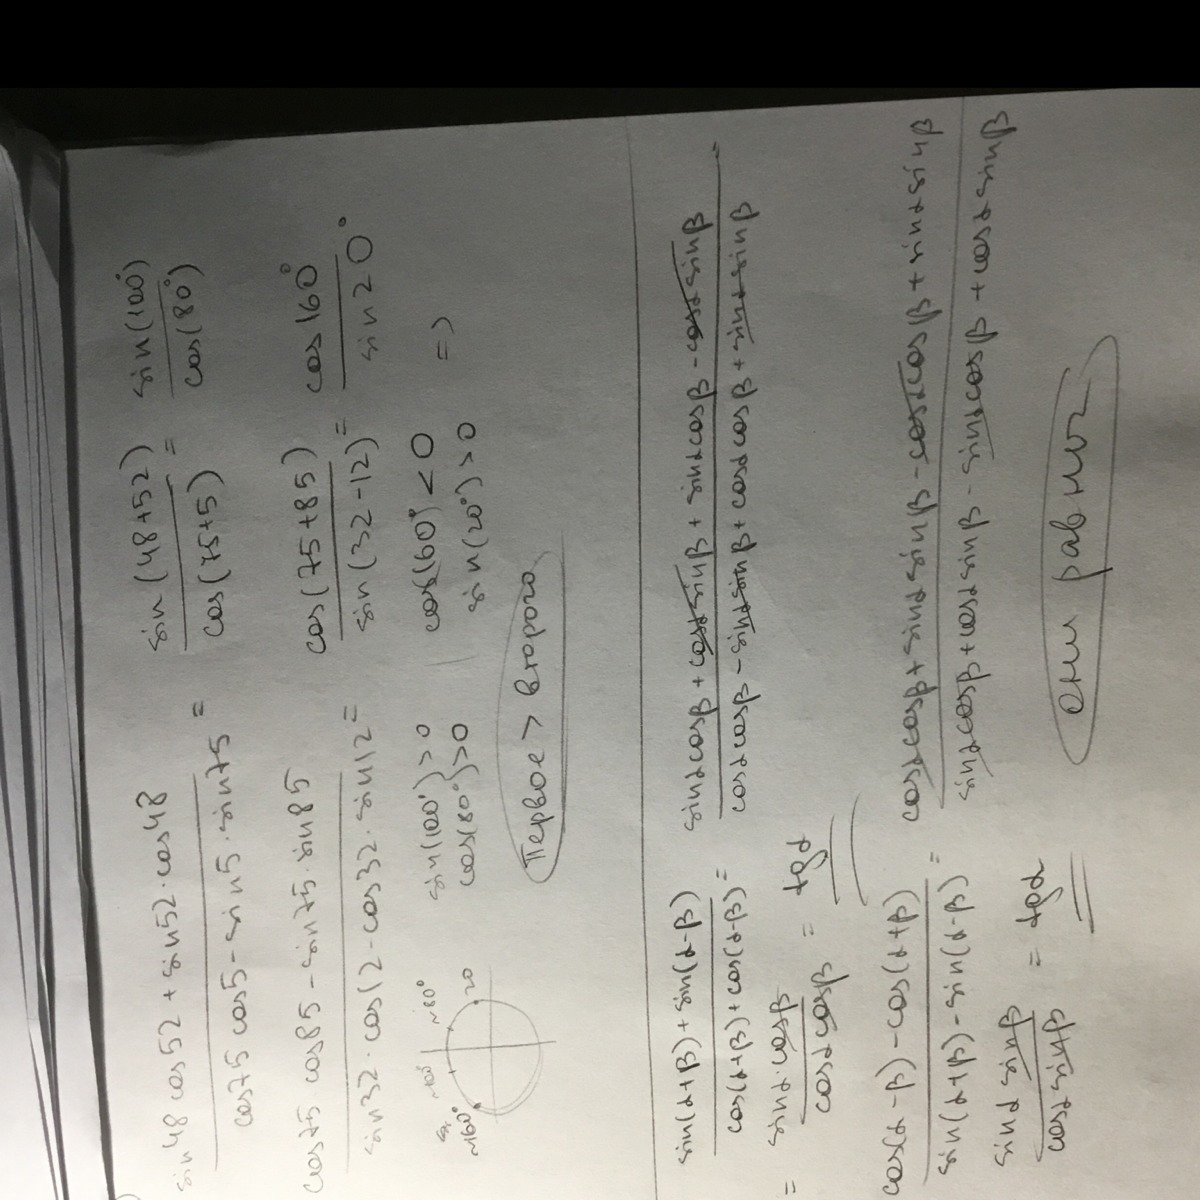 sin48 cos52 + sin52·cos48 / cos75 cos5 - sin5·sin75 = sin(48+52) / cos(75+5) = sin(100°) / cos(80°)
cos75 cos85 - sin75·sin85 / sin32·cos12 - cos32·sin12 = cos(75+85) / sin(32-12) = cos160° / sin20°
sin(100°) > 0 cos(160°) < 0
cos(80°) > 0 sin(20°) > 0 =>
~160° ~100° ~80° 20
Первое > второго
sin(α+β) + sin(α-β) / cos(α+β) + cos(α-β) = sinαcosβ + cosαsinβ + sinαcosβ - cosαsinβ / cosαcosβ - sinαsinβ + cosαcosβ + sinαsinβ =
= sinα·cosβ / cosαcosβ = tgα
cos(α-β) - cos(α+β) / sin(α+β) - sin(α-β) = cosαcosβ + sinαsinβ - cosαcosβ + sinαsinβ / sinαcosβ + cosαsinβ - sinαcosβ + cosαsinβ
sinα sinβ / cosαsinβ = tgα
они равны